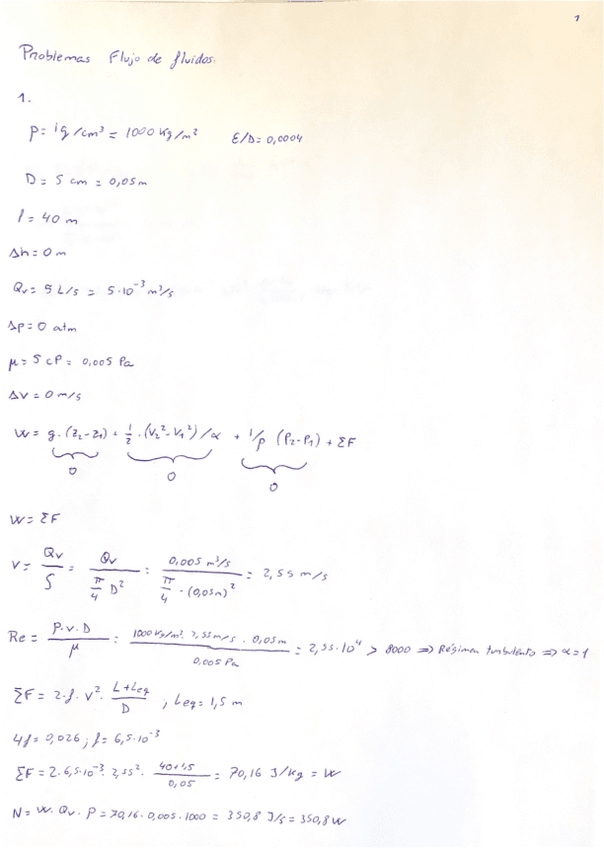 1
Problemas Flujo de fluidos.
1.
ρ = 1g/cm³ = 1000 Kg/m² E/D = 0,0004
D = 5 cm = 0,05 m
l = 40 m
Δh = 0 m
Qv = 5 L/s = 5·10⁻³ m³/s
Δp = 0 atm
μ = 5 cP = 0,005 Pa
Δv = 0 m/s
W = g·(z₂-z₁) + 1/2·(V₂²-V₁²)/α + 1/ρ (P₂-P₁) + ΣF
0 0 0
W = ΣF
V = Qv/S = Qv/(π/4 D²) = 0,005 m³/s / (π/4·(0,05m)²) = 2,55 m/s
Re = ρ·v·D/μ = 1000 Kg/m³·2,55 m/s·0,05m / 0,005 Pa = 2,55·10⁴ > 8000 ⇒ Régimen turbulento ⇒ α=1
ΣF = 2·f·V²·(L+Leq)/D ; Leq = 1,5 m
4f = 0,026 ; f = 6,5·10⁻³
ΣF = 2·6,5·10⁻³·2,55²·(40+1,5)/0,05 = 70,16 J/kg = W
N = W·Qv·ρ = 70,16·0,005·1000 = 350,8 J/s = 350,8 W